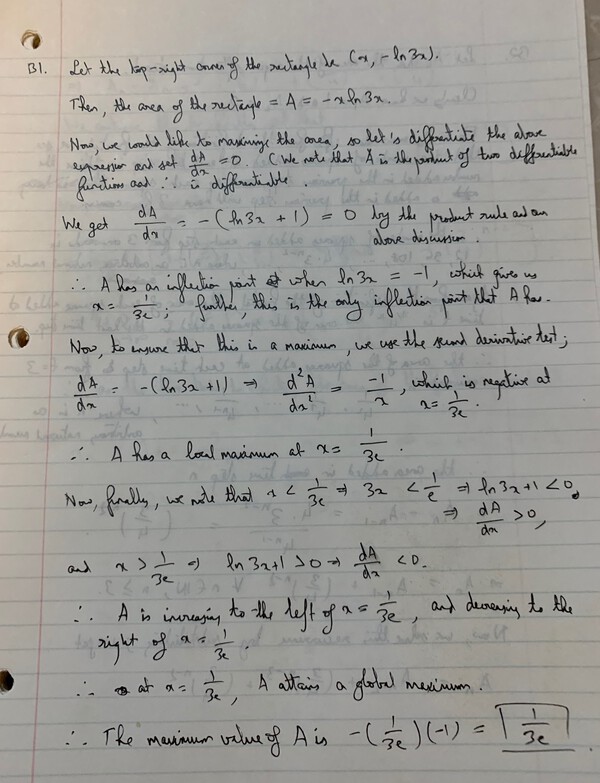 B1. Let the top-right corner of the rectangle be (x, -ln3x).
Then, the area of the rectangle = A = -x ln3x.
Now, we would like to maximize the area, so let's differentiate the above
expression and set dA/dx = 0. (We note that A is the product of two differentiable
functions and ∴ is differentiable.
We get dA/dx = -(ln3x + 1) = 0 by the product rule and our
above discussion.
∴ A has an inflection point when ln3x = -1, which gives us
x = 1/3e; further, this is the only inflection point that A has.
Now, to ensure that this is a maximum, we use the second derivative test;
dA/dx = -(ln3x+1) ⇒ d²A/dx² = -1/x, which is negative at
x = 1/3e.
∴ A has a local maximum at x = 1/3e.
Now, finally, we note that x < 1/3e ⇒ 3x < 1/e ⇒ ln3x+1 < 0,
⇒ dA/dx > 0,
and x > 1/3e ⇒ ln3x+1 > 0 ⇒ dA/dx < 0.
∴ A is increasing to the left of x = 1/3e, and decreasing to the
right of x = 1/3e.
∴ at x = 1/3e, A attains a global maximum.
∴ The maximum value of A is -(1/3e)(-1) = 1/3e.